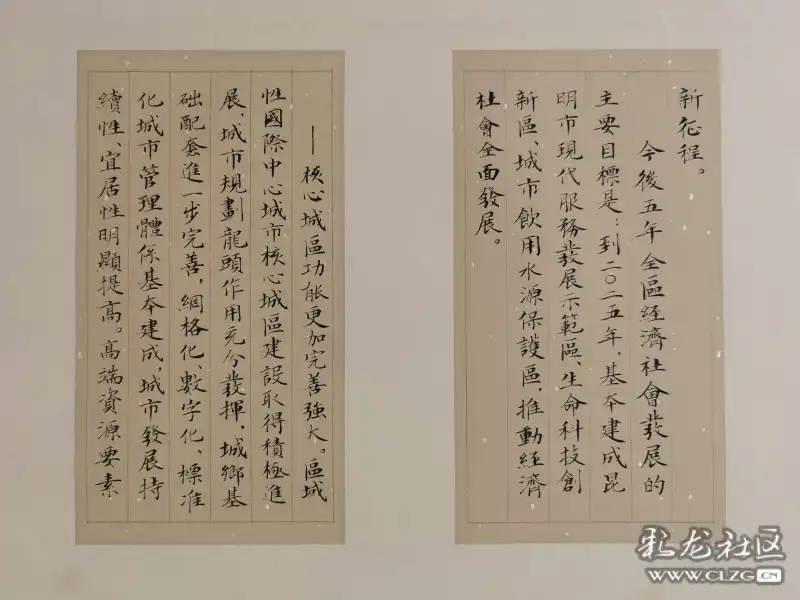 新征程。
今後五年全區經濟社會發展的
主要目標是：到二〇二五年，基本建成昆
明市現代服務發展示範區、生命科技創
新區、城市飲用水源保護區，推動經濟
社會全面發展。
——核心城區功能更加完善強大。區域
性國際中心城市核心城區建設取得積極進
展，城市規劃龍頭作用充分發揮，城鄉基
礎配套進一步完善，網格化、數字化、標准
化城市管理體係基本建成，城市發展持
續性、宜居性明顯提高。高端資源要素
彩龙社区
WWW.CLZG.CN